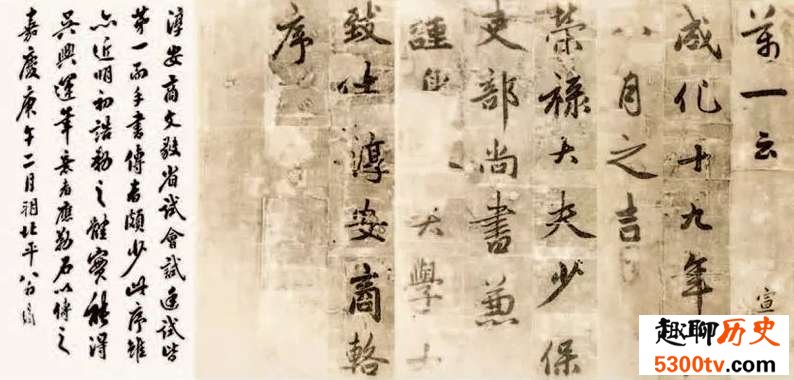 萬一云
宣
成化十九年
八月之吉
榮祿大夫少保
吏部尚書兼
謹身大學士
致仕淳安商輅
序
淳安商文毅省試會試廷試皆
第一而手書傳者頗少此序雖
亦近明初誥勅之體實能得
吳興運筆意者應勒石以傳之
嘉慶庚午二月朔北平
趣聊历史
5300tv.com